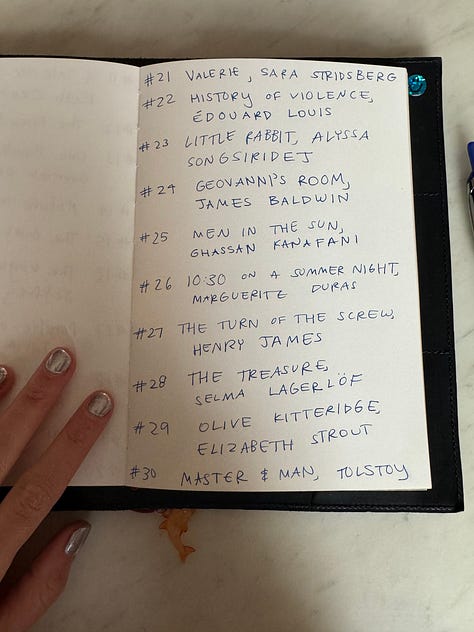 #21 VALERIE, SARA STRIDSBERG
#22 HISTORY OF VIOLENCE,
ÉDOUARD LOUIS
#23 LITTLE RABBIT, ALYSSA
SONGSIRIDEJ
#24 GEOVANNI'S ROOM,
JAMES BALDWIN
#25 MEN IN THE SUN,
GHASSAN KANAFANI
#26 10:30 ON A SUMMER NIGHT,
MARGUERITE DURAS
#27 THE TURN OF THE SCREW,
HENRY JAMES
#28 THE TREASURE,
SELMA LAGERLÖF
#29 OLIVE KITTERIDGE,
ELIZABETH STROUT
#30 MASTER & MAN, TOLSTOY